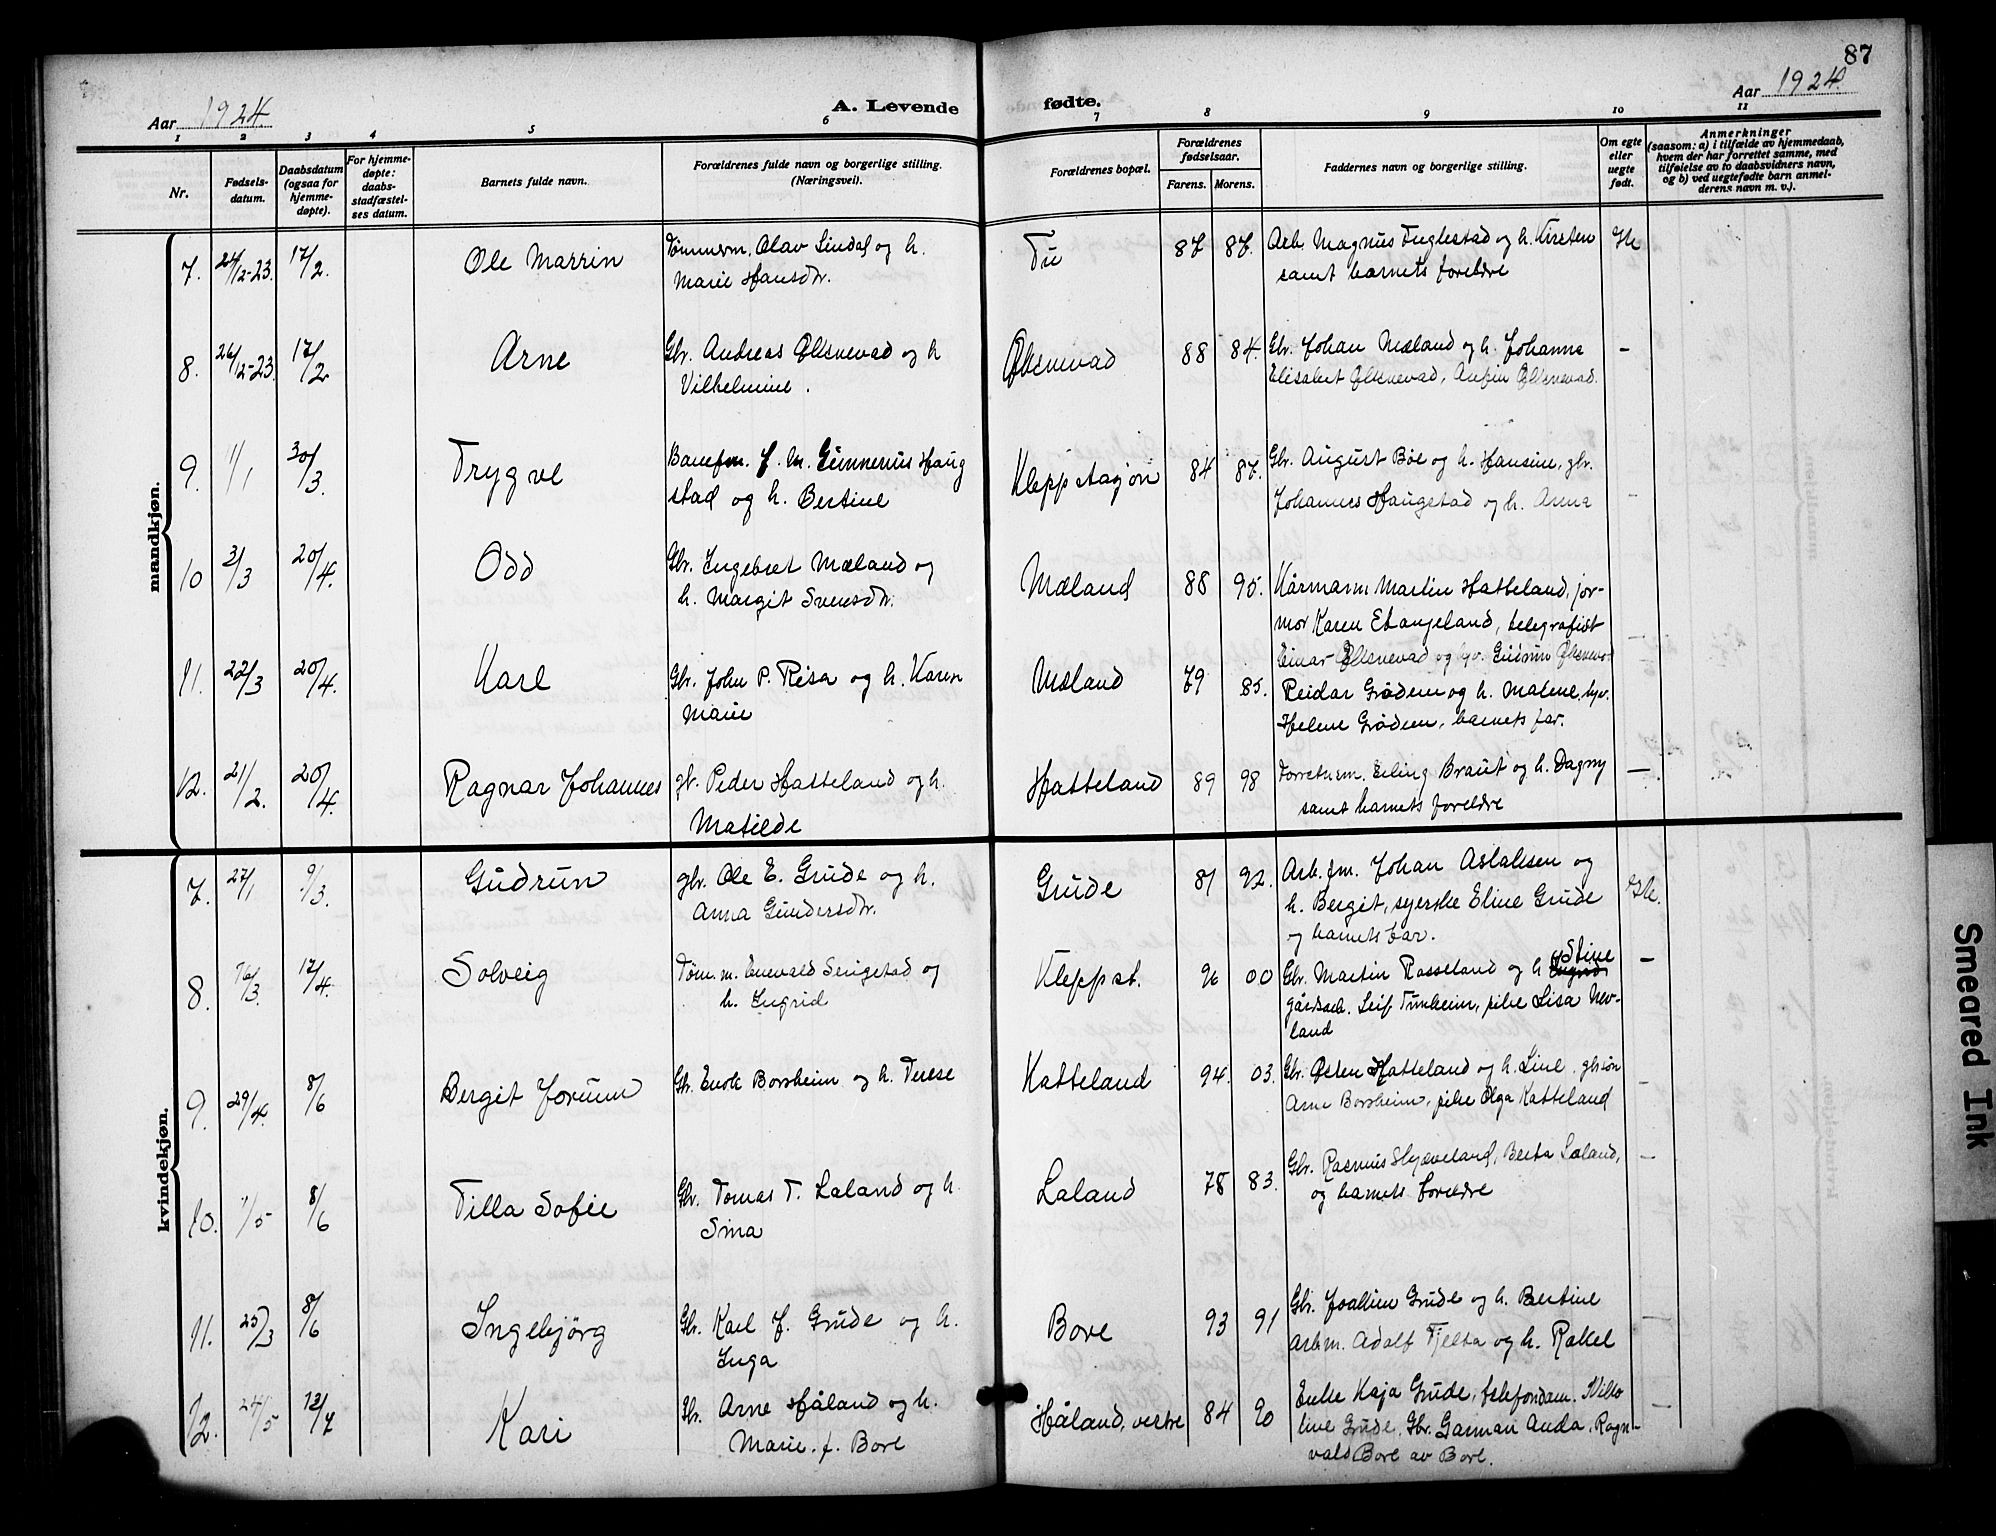 87
Aar 1924.
A. Levende
fødte.
Aar 1924.
1 2 3 4 5 6 7 8 9 10 11
Nr.
Fødsels-
datum.
Daabsdatum
(ogsaa for
hjemme-
døpte).
For hjemme-
døpte:
daabs-
stadfæstel-
ses datum.
Barnets fulde navn.
Forældrenes fulde navn og borgerlige stilling.
(Næringsvei).
Forældrenes bopæl.
Forældrenes
fødselsaar.
Farens. Morens.
Faddernes navn og borgerlige stilling.
Om egte
eller
uegte
født.
Anmerkninger
(saasom: a) i tilfælde av hjemmedaab,
hvem der har forrettet samme, med
tilføielse av to daabsvidners navn,
og b) ved uegtefødte barn anmel-
derens navn m. v.).
mandkjøn.
7. 24/12-23. 17/2. Ole Marrin Tømmerm. Olav Lindal og h. Tu 87 87. Arb. Magnus Fuglestad og h. Kirsten
Marie Hansdtr. samt barnets foreldre
8. 26/12-23. 17/2 Arne Gbr. Andreas Øksnevad og h Øksnevad 88 84. Gbr. Johan Mæland og h. Johanna –
Vilhelmine. Elisabet Øksnevad, Anfin Øksnevad.
9. 1/1 30/3. Trygve Banefm. J. M. Gunnerius Haug Klepp stasjon 84 87. Gbr. August Bøe og h. Hansine, gbr.
stad og h. Bertine Johannes Haugstad og h. Anna –
10 3/3 20/4. Odd Gbr. Ingebret Mæland og Mæland 88 95. Kårmann Martin Hatteland, jor-
h. Margit Svensdtr. mor Karen Etangeland, telegrafist –
Einar Øksnevad og Gudrun Øksnevad
11. 22/3 20/4. Karl Gbr. John P. Risa og h. Karen Mæland 79 85. Reidar Grødem og h. Malene,
Marie Helene Grødem, barnets far.
12. 21/2. 20/4. Ragnar Johannes gbr. Peder Hatteland og h. Hatteland 89 98 Forretnm. Erling Braut og h. Dagny –
Matilde samt barnets foreldre
kvindekjøn.
7. 27/1 9/3. Gudrun gbr. Ole E. Grude og h. Grude 81 92. Arb.fm. Johan Aslaksen og
Anna Gundersdtr. h. Bergit, syerske Eline Grude
og barnets far.
8. 16/3. 17/4. Solveig Tøm.m. Enevald Serigstad og Klepp st. 96 00 Gbr. Martin Rasseland og h Stine –
h. Ingrid gårdsarb. Leif Tunheim, pike Lisa Nev-
land
9. 29/4. 8/6 Bergit Jorunn Gbr. Enok Borsheim og h. Terese Katteland 94. 03. Gbr. Østen Hatteland og h. Line, gbrsøn –
Arne Borsheim, pike Olga Katteland
10. 1/5 8/6 Tilla Sofie Gbr. Tomas T. Laland og h. Laland 78 83. Gbr. Rasmus Skjæveland, Berta Laland, –
Sina og barnets foreldre
11. 25/3 8/6 Ingebjørg Gbr. Karl J. Grude og h. Bore 93 91 Gbr. Joakim Grude og h. Bertine
Inga Arbm. Adolf Tjelta og h. Rakel –
12. 24/5 13/7 Kari Gbr. Arne Håland og h. Håland, vestre 84 90 Enke Kaja Grude, telefondam. Nikko –
Marie f. Bore line Grude, Gbr. Garman Anda, Ragn-
vald Bore av Bore.
Smeared Ink